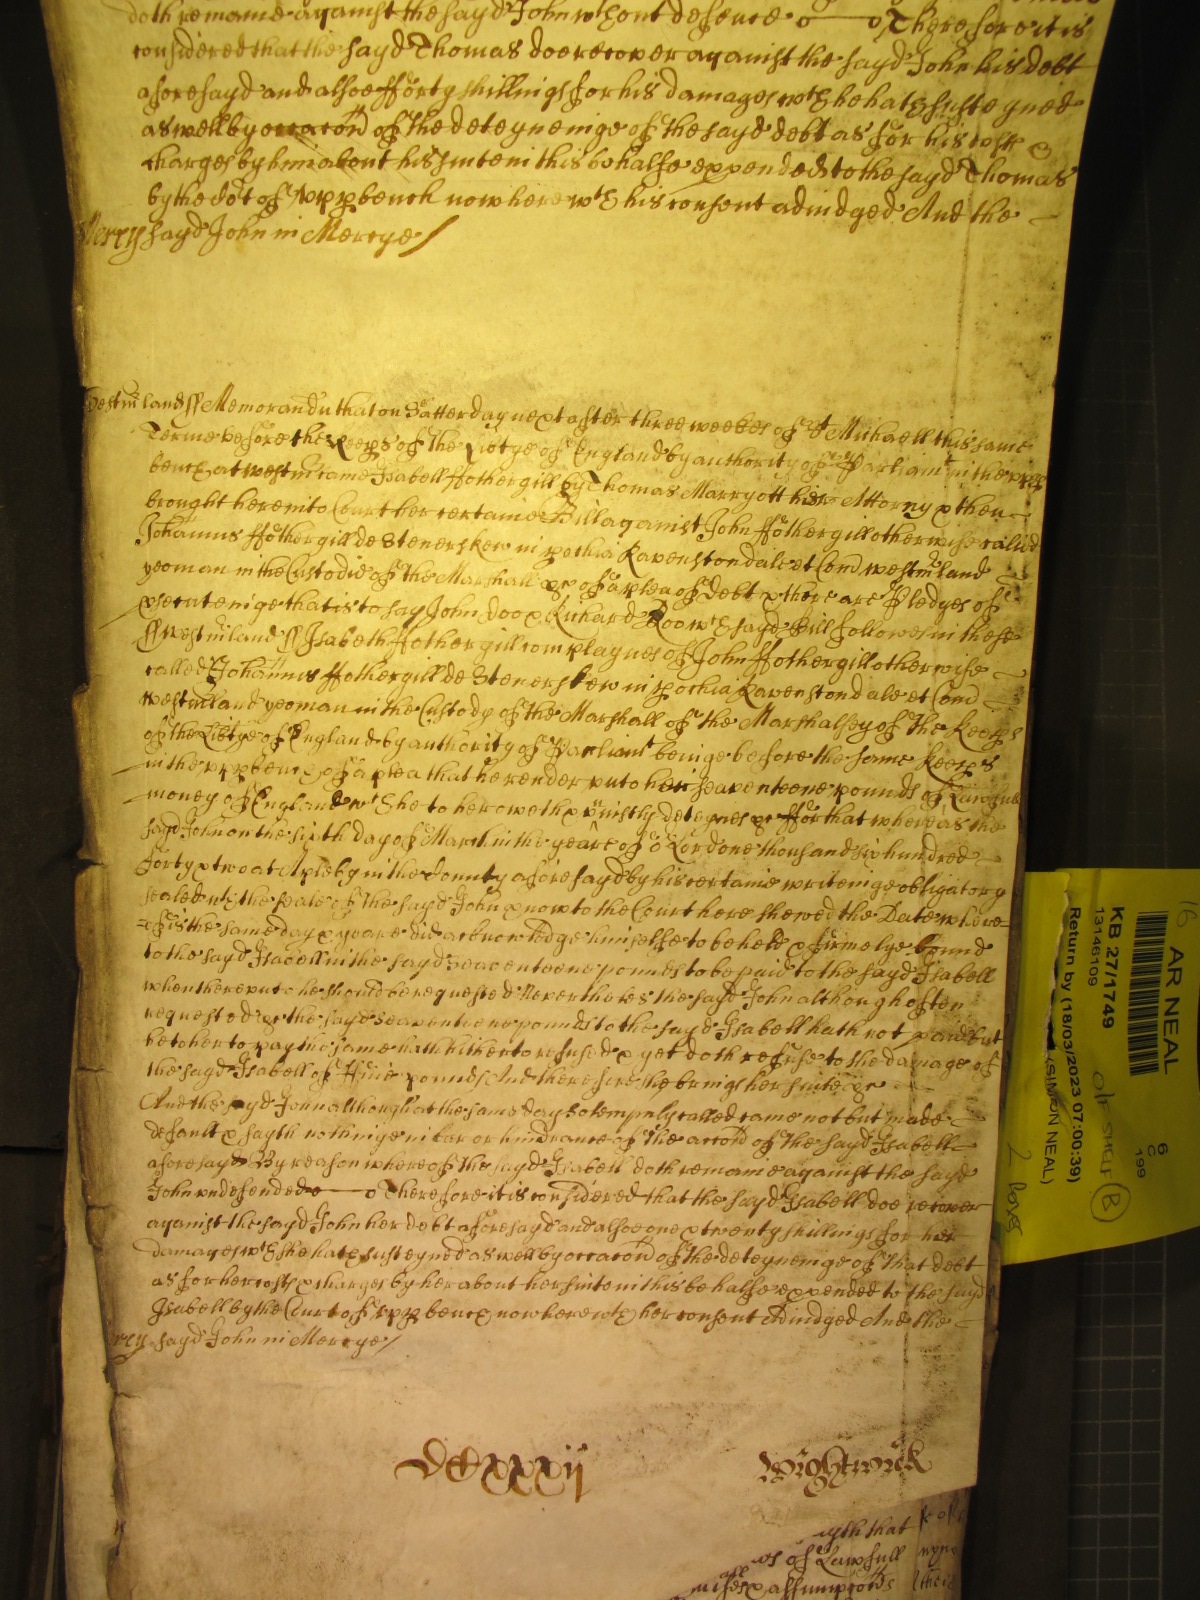 doth remaine against the sayd John wthout defence o—o Therefore it is
considered that the sayd Thomas doe recover against the sayd John his debt
aforesayd and alsoe fforty shillings for his damages wch he hath susteyned
aswell by occacon of the deteyneinge of the sayd debt as for his costs
charges by him about his suite in this behalfe expended to the sayd Thomas
by the Cort of upp bench now here wth his consent adiudged And the
Mercy sayd John in Mercye /
Westmland ss Memorandu that on Satterday next after three weekes of St Michaell this same
Terme before the Keeps of the Libtye of England by authority of Parliamt in the upp
bench at westm came Isabell ffothergill by Thomas Marryott his Attorny & then
brought here into Court her certaine Bill against John ffothergill otherwise called
Johannis ffothergill de Stenerskew in pochia Ravenstondale et Com westmland
yeoman in the Custodie of the Marshall &c of a plea of debt & there are Pledges of
psecuteinge that is to say John Doo & Richard Roo wch sayd Bill followes in these
ss Westmland ss Isabell ffothergill complaynes of John ffothergill otherwise
called Johannis ffothergill de Stenerskew in pochia Ravenstondale et Com
westmland yeoman in the Custody of the Marshall of the Marshalsey of the Keeps
of the Libtye of England by authority of Parliamt beinge before the same Keeps
in the upp bench of a plea that he render unto her seaventeene pounds of Lawfull
money of England wch he to her oweth & uniustly deteynes &c ffor that whereas the
sayd John on the sixth day of March in the yeare of or Lord one thousand six hundred
forty & two at Apleby in the County aforesayd by his certaine writeinge obligatory
sealed with the seale of the sayd John & now to the Court here shewed the Date where
of is the same day & yeare did acknowledge himselfe to be held & firmelye bound
to the sayd Isabell in the sayd seaventeene pounds to be paid to the sayd Isabell
when thereunto he should be requested Neverthelesse the sayd John although often
requested &c the sayd seaventeene pounds to the sayd Isabell hath not paid but
he to her to pay the same hath hitherto refused & yet doth refuse to the damage of
the sayd Isabell of ffive pounds And therefore she brings her suite &c
And the sayd John although at the same day solempnly called came not but made
default & sayth nothinge in bar or hindrance of the accon of the sayd Isabell
aforesayd By reason whereof the sayd Isabell doth remaine against the sayd
John undefended o—o Therefore it is considered that the sayd Isabell doe recover
against the sayd John her debt aforesayd and alsoe one & twenty shillings for her
damages wch she hath susteyned aswell by occacon of the deteyneinge of that debt
as for her costs & charges by her about her suite in this behalfe expended to the sayd
Isabell by the Court of upp bench now here wth her consent Adiudged And the
rcy sayd John in Mercye /
Wightwick
yth that
ws of Lawfull
mises & assumpcons
16
AR NEAL
6
C
199
KB 27/1749
13146109
Return by (18/03/2023 07:00:39)
(SIMON NEAL)
B
2 boxes